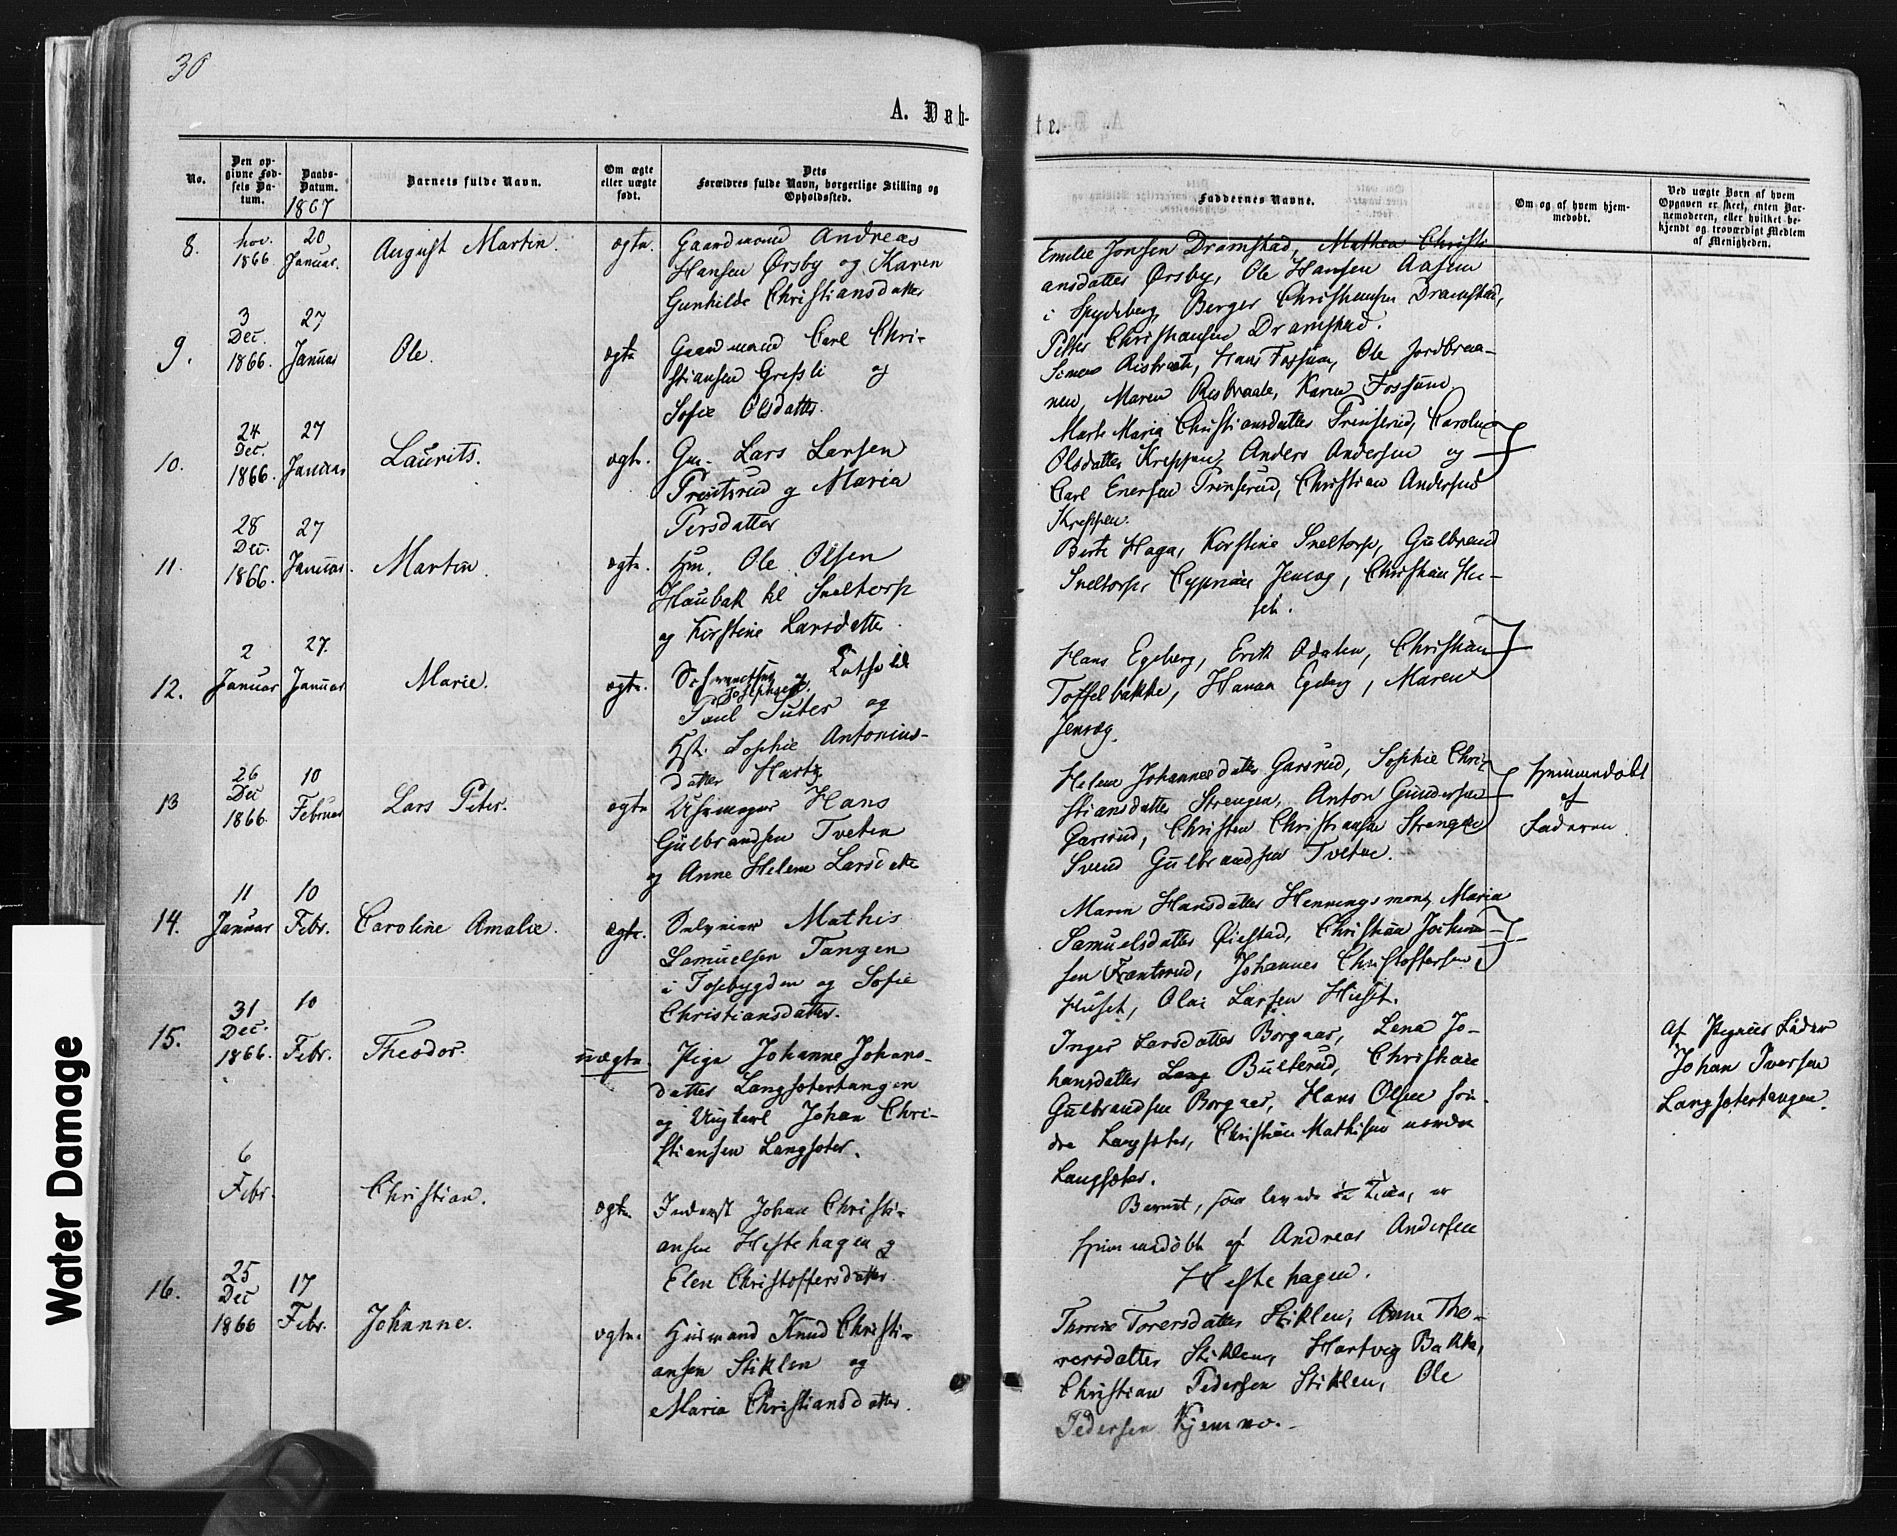 30
A. Døb-
te.
No.
Den op-
givne Fød-
sels Da-
tum.
Daabs-
Datum.
1867
Barnets fulde Navn.
Om ægte
eller uægte
født.
Dets
Forældres fulde Navn, borgerlige Stilling og
Opholdssted.
Faddernes Navne.
Om og af hvem hjem-
medøbt.
Ved uægte Børn af hvem
Opgaven er skeet, enten Bar-
nemoderen, eller hvilket be-
kjendt og troværdigt Medlem
af Menigheden.
8.
1866
20
Januar.
August Martin
ægte.
Gaardmand Andreas
Hansen Ørsby og Karen
Gunhilde Christiansdatter
Emilie Jonsen Dramstad, Mathea Christi
ansdatter Ørsby, Ole Hansen Aasen
i Spydeberg, Berger Christiansen Dramstad,
Petter Christiansen Dramstad.
9.
3
Dec.
1866.
27
Januar
Ole.
ægte
Gaardmand Carl Chri-
stiansen Gresli og
Sofie Olsdatter.
Simen Risbraate, Hans Fossum, Ole Jordbraa-
nen, Maren Risbraate, Karen Fossum.
10.
24
Dec.
1866.
27
Januar
Laurits.
ægte.
Gm. Lars Larsen
og Maria
Persdatter
Marte Maria Christiansdatter Caroline
Olsdatter Kreppen, Anders Andersen og
Carl Enersen Christian Andersen
Kreppen.
11.
28
Dec.
1866.
27
Januar.
Martin
ægte.
Hm. Ole Olsen
Haubak til Sneltorp
og Kirstine Larsdatter.
Berte Haga, Kirstine Sneltorp, Gulbrand
Sneltorp, Jensæg, Christian Hu-
set.
12.
2
Januar
27.
Januar
Marie.
ægte.
Josephsen
Paul Suter og
Hst. Sophie Antonius-
datter
Hans Egeberg, Erik Odalen, Christian
Toffelbakke, Hanna Egeberg, Maren
Jensæg.
13
26
Dec
1866.
10
Februar
Lars Peter.
ægte
Uhrmager Hans
Gulbrandsen Tveten
og Anne Helene Larsdatter
Helene Johannesdatter Garsrud, Sophie Chri-
stiansdatter Strengen, Anton Gundersen
Garsrud, Christen Christiansen Strengen
Svend Gulbrandsen Tveten.
hjemmedøbt
af
Faderen.
14.
11
Januar
10
Febr.
Caroline Amalie.
ægte.
Selveier Mathis
Samuelsen Tangen
i Tosebygden og Sofie
Christiansdatter.
Maren Hansdatter Henningsmoen, Maria
Samuelsdatter Øiestad, Christian
sen Johannes Christoffersen
Huset, Olai Larsen Huset.
15.
31
Dec.
1866.
10
Febr.
Theodor.
uægte.
Pige Johanne Johans-
datter Langsøtertangen
og Ungkarl Johan Chri-
stiansen Langsøter.
Inger Larsdatter Borgaas, Lena Jo-
hansdatter Lang Bulterud, Christian
Gulbrandsen Borgaas, Hans Olsen søn-
dre Langsøter, Christian Mathisen nordre
Langsøter.
Af Pigens Fader
Johan Iversen
Langsøtertangen.
6
Febr.
Christian.
ægte.
Inderst Johan Christi-
ansen Heftehagen og
Elen Christoffersdatter.
Barnet, som levede ½ Time, er
hjemmedøbt af Andreas Andersen
Heftehagen.
16.
25
Dec
1866
17
Febr.
Johanne.
ægte.
Husmand Knud Christi-
ansen Stiklen og
Maria Christiansdatter.
Thorine Torersdatter Stiklen, Anne Tho-
rersdatter Stiklen, Hartvig Bakke,
Christian Pedersen Stiklen, Ole
Pedersen Kjernmo.
Water Damage